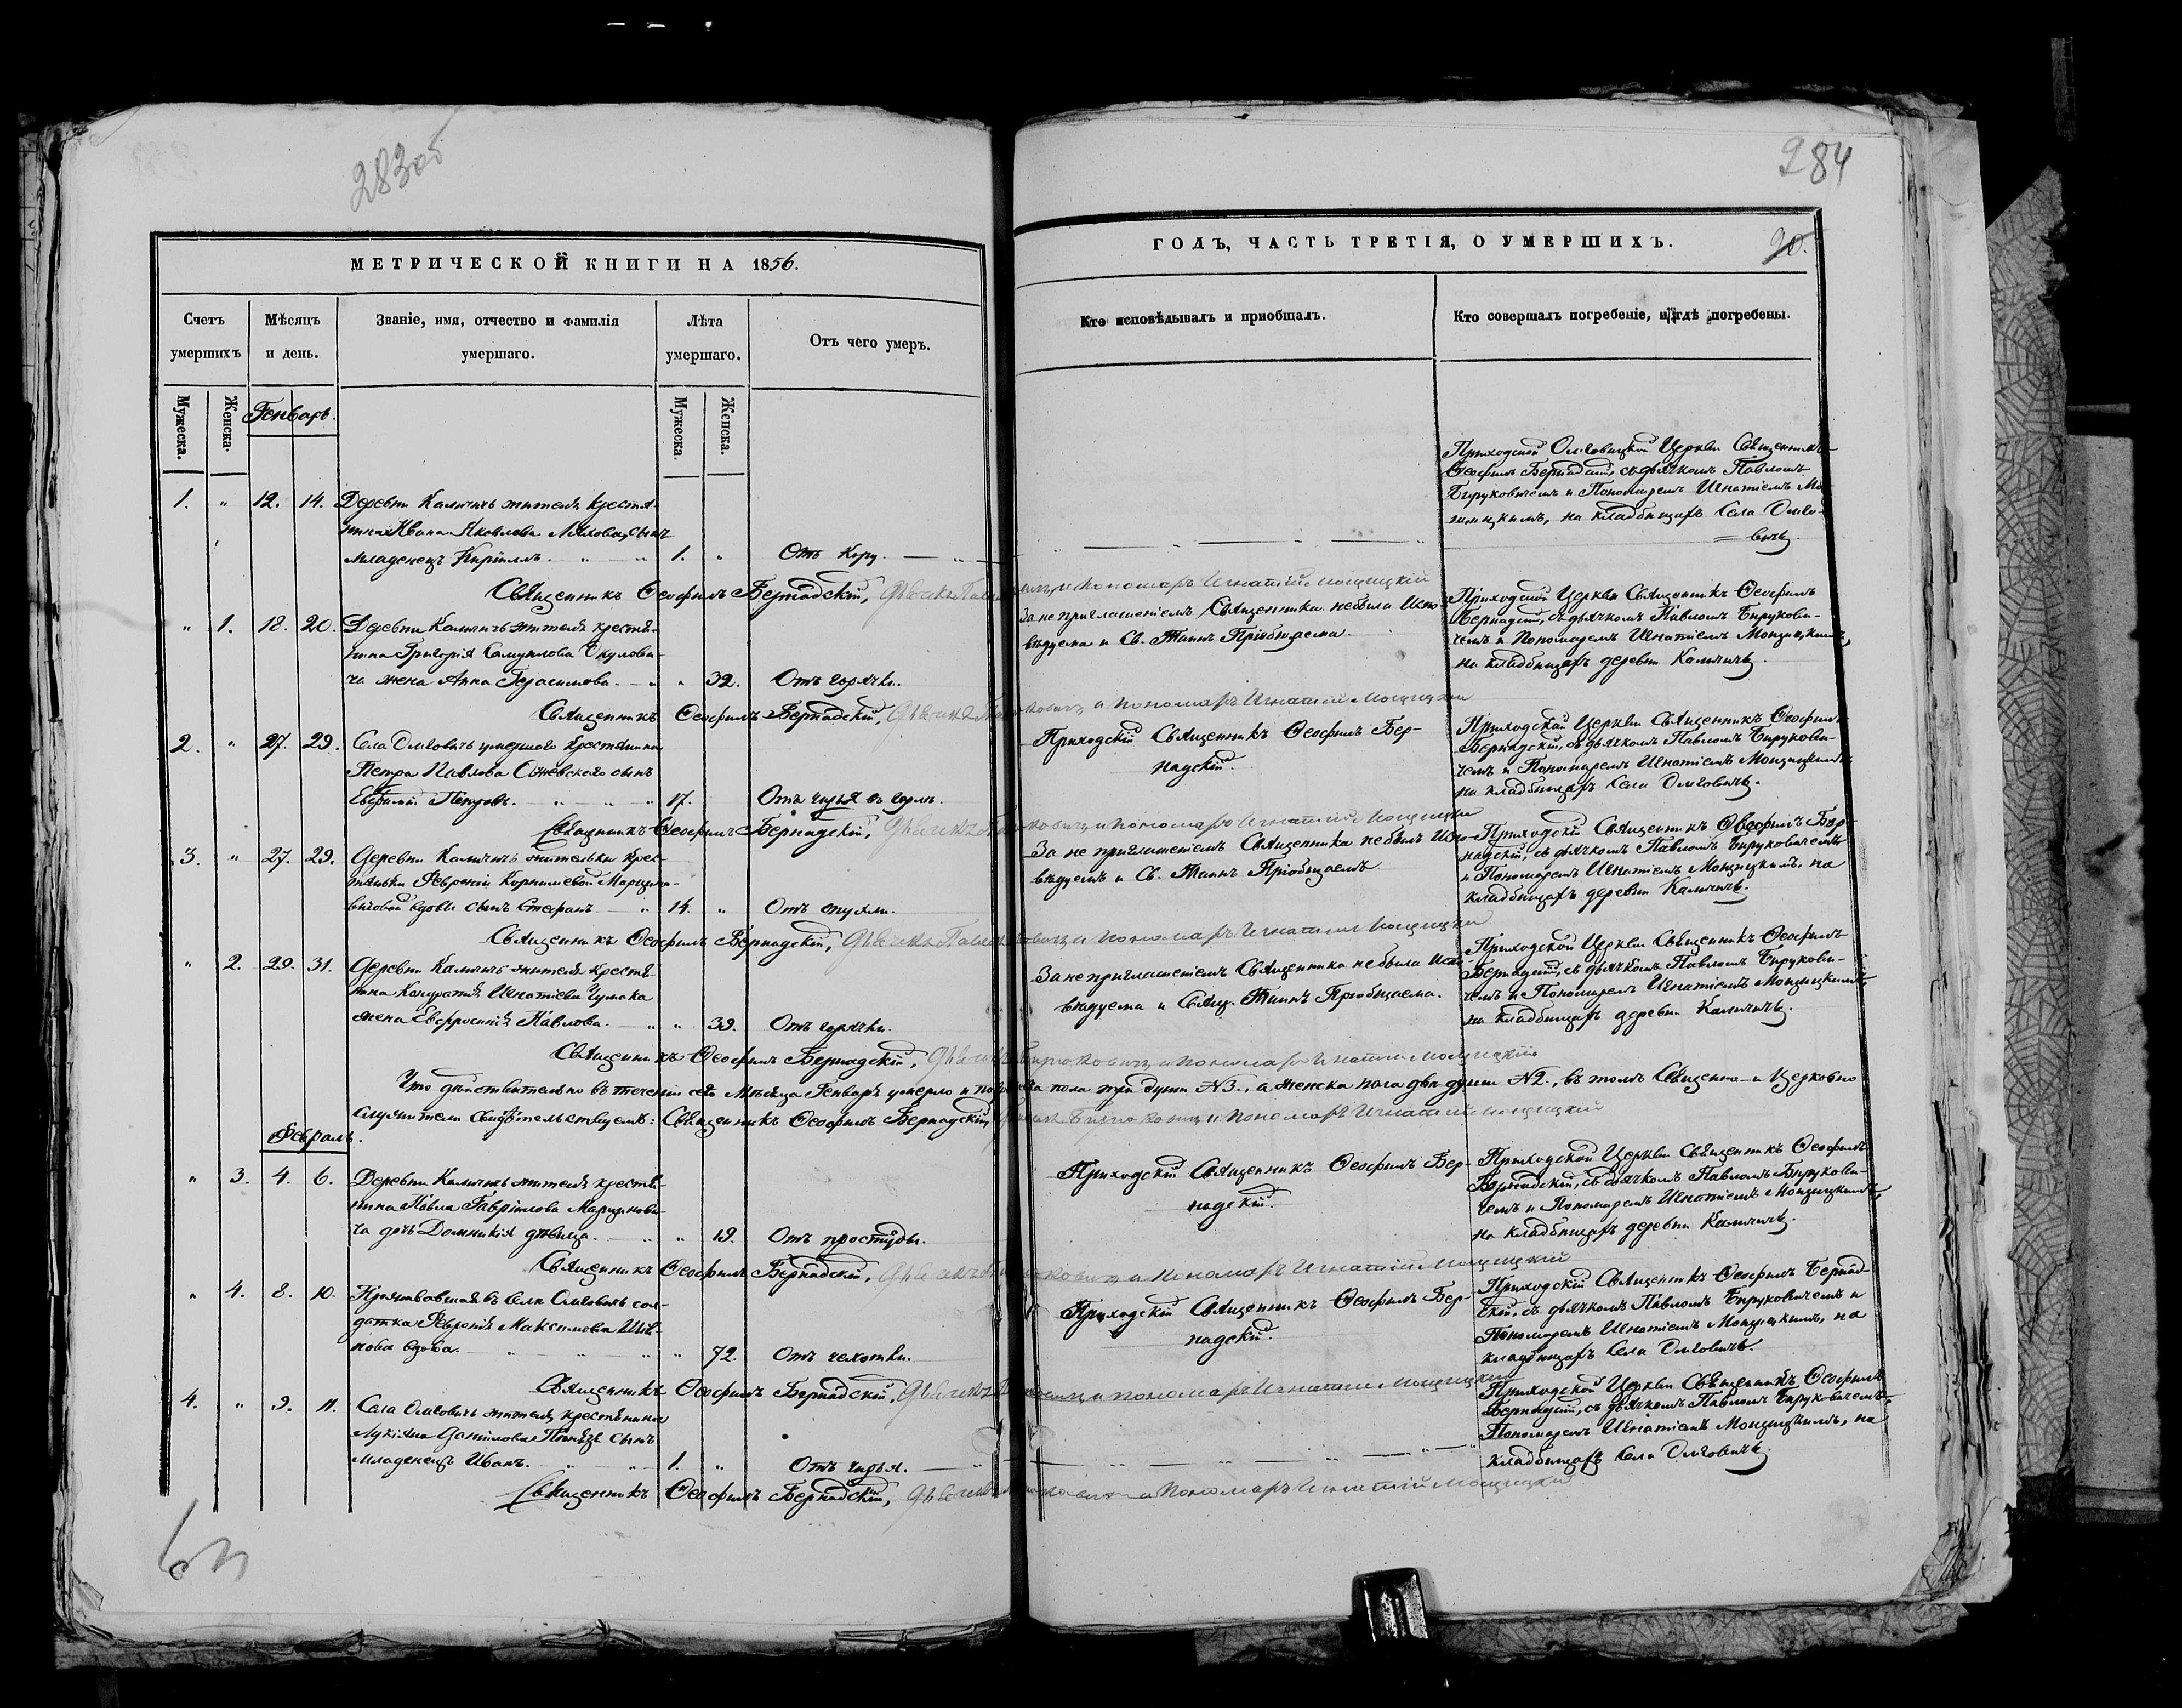 283об
284
МЕТРИЧЕСКОЙ КНИГИ НА 1856.
ГОДЪ, ЧАСТЬ ТРЕТІЯ, О УМЕРШИХЪ.
20.
Счетъ умершихъ
Мѣсяцъ и день.
Званіе, имя, отчество и фамилія умершаго.
Лѣта умершаго.
Отъ чего умеръ.
Кто исповѣдывалъ и пріобщалъ.
Кто совершалъ погребеніе, и гдѣ погребены.
Мужеска.
Женска.
Мужеска.
Женска.
Генварь.
1. „ 12. 14. Деревни Каличичъ жителя крестья-
нина Ивана Яковлева Ляхова, сынъ
младенецъ Кириллъ. 1. „ Отъ кору.
Приходской Олговицкой Церкви Священникъ
Ѳеофилъ Бернадскій, съ дьячкомъ Павломъ
Бируковичемъ и Пономаремъ Игнатіемъ Мо-
щицкимъ, на кладбищахъ села Олго-
вичъ.
Священникъ Ѳеофилъ Бернадскій, и пономаръ Игнатій Мощицкій
„ 1. 18. 20. Деревни Каличичъ жителя крестья-
нина Григорія Самуилова
ча жена Анна Герасимова. „ 32. Отъ горячки.
За не приглашеніемъ Священника небыла Испо-
вѣдуема и Св. Таинъ Пріобщаема.
Приходской Церкви Священникъ Ѳеофилъ
Бернадскій, съ дьячкомъ Павломъ Бирукови-
чемъ и Пономаремъ Игнатіемъ Мощицкимъ,
на кладбищахъ деревни Каличичъ.
Священникъ Ѳеофилъ Бернадскій, и пономаръ Игнатій Мощицкій
2. „ 27. 29. Села Олговичъ умершаго крестьянина
Петра Павлова сынъ
Евфимій Петровъ. 17. Отъ чирья въ горлѣ.
Приходскій Священникъ Ѳеофилъ Бер-
надскій.
Приходской Церкви Священникъ Ѳеофилъ
Бернадскій, съ дьячкомъ Павломъ Бирукови-
чемъ и Пономаремъ Игнатіемъ Мощицкимъ
на кладбищахъ села Олговичъ.
Священникъ Ѳеофилъ Бернадскій, и пономаръ Игнатій Мощицкій
3. „ 27. 29. Деревни Каличичъ жительки крес-
тьянки Февроніи Корниліевой Марцино-
вичовой вдовы сынъ Стефанъ 14. „ Отъ опухли.
За не приглашеніемъ Священника небылъ Испо-
вѣдуемъ и Св. Таинъ Пріобщаемъ
Приходскій Священникъ Ѳеофилъ Бер-
надскій, съ дьячкомъ Павломъ Бируковичемъ
и Пономаремъ Игнатіемъ Мощицкимъ, на
кладбищахъ деревни Каличичъ.
Священникъ Ѳеофилъ Бернадскій, и пономаръ Игнатій Мощицкій
„ 2. 29. 31. Деревни Каличичъ жителя крестья-
нина Кондратія Игнатіева Чумака
жена Евфросинія Павлова. „ 39. Отъ горячки.
За не приглашеніемъ Священника небыла Испо-
вѣдуема и Свящ. Таинъ Пріобщаема.
Приходской Церкви Священникъ Ѳеофилъ
Бернадскій, съ дьячкомъ Павломъ Бирукови-
чемъ и Пономаремъ Игнатіемъ Мощицкимъ,
на кладбищахъ деревни Каличичъ.
Священникъ Ѳеофилъ Бернадскій, Бируковичъ и пономаръ Игнатій Мощицкій
Что дѣйствительно въ теченіи сего Мѣсяца Генваря умерло пола три души №3., а женска пола двѣ души №2., въ томъ Священно- и Церковно
служители свидѣтельствуемъ: Священникъ Ѳеофилъ Бернадскій Бируковичъ и пономаръ Игнатій Мощицкій
Февраль.
„ 3. 4. 6. Деревни Каличичъ жителя крестья-
нина Павла Гавріилова Марцинови-
ча дочь Домникія дѣвица. „ 19. Отъ простуды.
Приходскій Священникъ Ѳеофилъ Бер-
надскій.
Приходской Церкви Священникъ Ѳеофилъ
Бернадскій, съ дьячкомъ Павломъ Бирукови-
чемъ и Пономаремъ Игнатіемъ Мощицкимъ,
на кладбищахъ деревни Каличичъ.
Священникъ Ѳеофилъ Бернадскій, и пономаръ Игнатій Мощицкій
„ 4. 8. 10. въ селѣ Олговичъ сол-
датка Февронія Максимова
вдова. „ 72. Отъ чахотки.
Приходскій Священникъ Ѳеофилъ Бер-
надскій.
Приходскій Священникъ Ѳеофилъ Бернад-
скій, съ дьячкомъ Павломъ Бируковичемъ и
Пономаремъ Игнатіемъ Мощицкимъ, на
кладбищахъ села Олговичъ.
Священникъ Ѳеофилъ Бернадскій, и пономаръ Игнатій Мощицкій
4. „ 9. 11. Села Олговичъ жителя крестьянина
Лукіяна Данилова сынъ
младенецъ Иванъ. 1. „ Отъ чирья.
Приходской Церкви Священникъ Ѳеофилъ
Бернадскій, съ дьячкомъ Павломъ Бируковичемъ,
Пономаремъ Игнатіемъ Мощицкимъ, на
кладбищахъ села Олговичъ.
Священникъ Ѳеофилъ Бернадскій, и пономаръ Игнатій Мощицкій